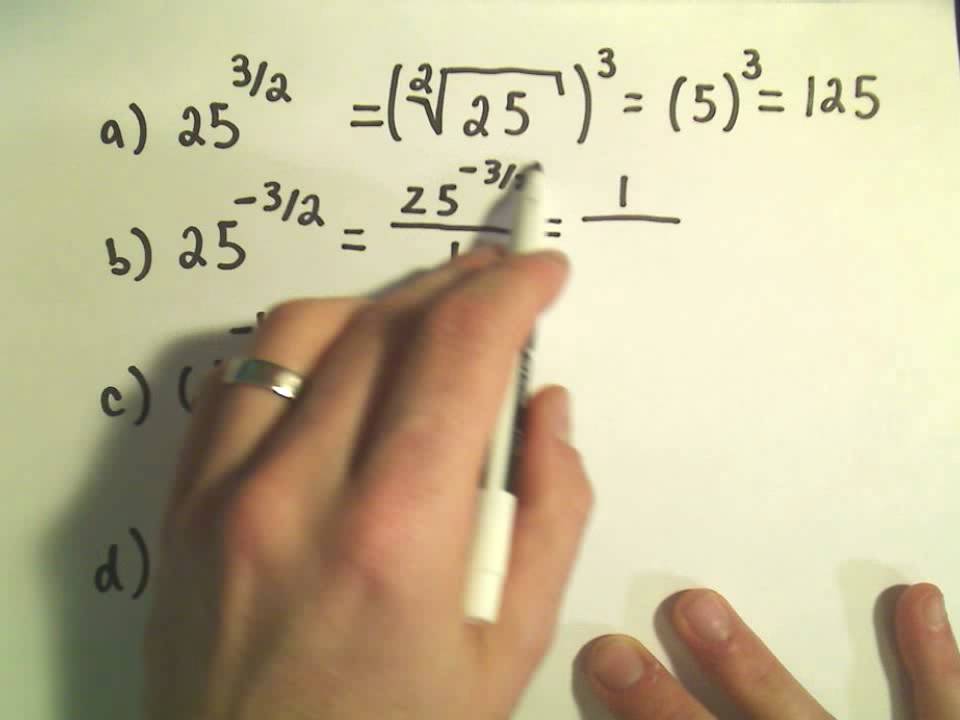 a) 25^3/2 = (²√25)^3 = (5)^3 = 125
b) 25^-3/2 = 25^-3/ / 1 = 1/
c) ( -
d)